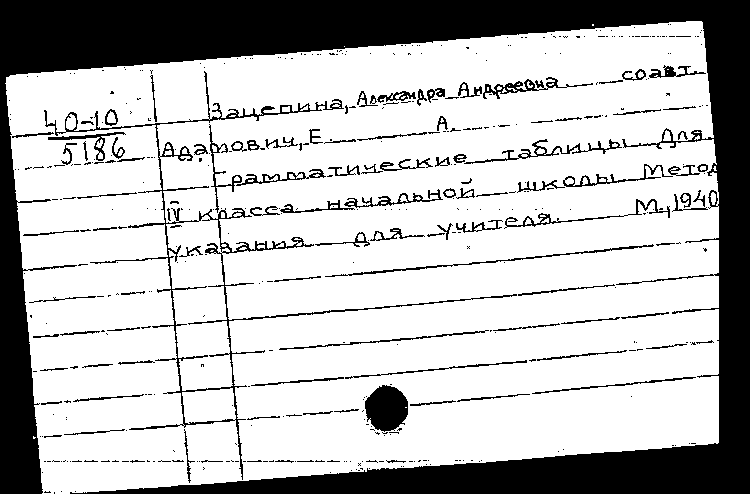 40-10
5186
Зацепина, Александра Андреевна соавт.
Адамович, Е. А.
Грамматические таблицы для
IV класса начальной школы Метод
указания для учителя. М., 1940